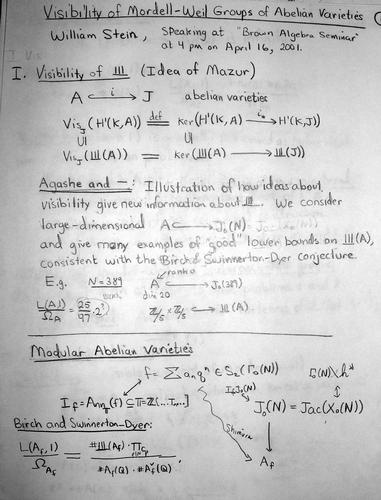 Visibility of Mordell-Weil Groups of Abelian Varieties
William Stein, Speaking at "Brown Algebra Seminar"
at 4 pm on April 16, 2001.
I. Visibility of Ш (Idea of Mazur)
A ↪ᶦ J abelian varieties
Vis_J (H¹(K,A)) =^{def} Ker(H¹(K,A) → H¹(K,J))
UI UI
Vis_J (Ш(A)) = Ker(Ш(A) → Ш(J))
Agashe and —: Illustration of how ideas about
visibility give new information about Ш. We consider
large-dimensional A ↪ J₀(N)
and give many examples of "good" lower bounds on Ш(A),
consistent with the Birch & Swinnerton-Dyer conjecture.
rank 0
E.g. N=389 A ↪ J₀(389)
dim 20
L(A,1)/Ω_A = 25/97 · 2^? Z/5 × Z/5 ↪ Ш(A)
Modular Abelian Varieties
f = Σ aₙqⁿ ∈ S₂(Γ₀(N))
I_f = Ann_T(f) ⊆ T = Z[...Tₙ...] I_f J₀(N)
J₀(N) = Jac(X₀(N))
Shimura
Birch and Swinnerton-Dyer:
L(A_f, 1)/Ω_{A_f} = #Ш(A_f) · Πc_p / #A_f(Q) · #A_f^∨(Q)
A_f